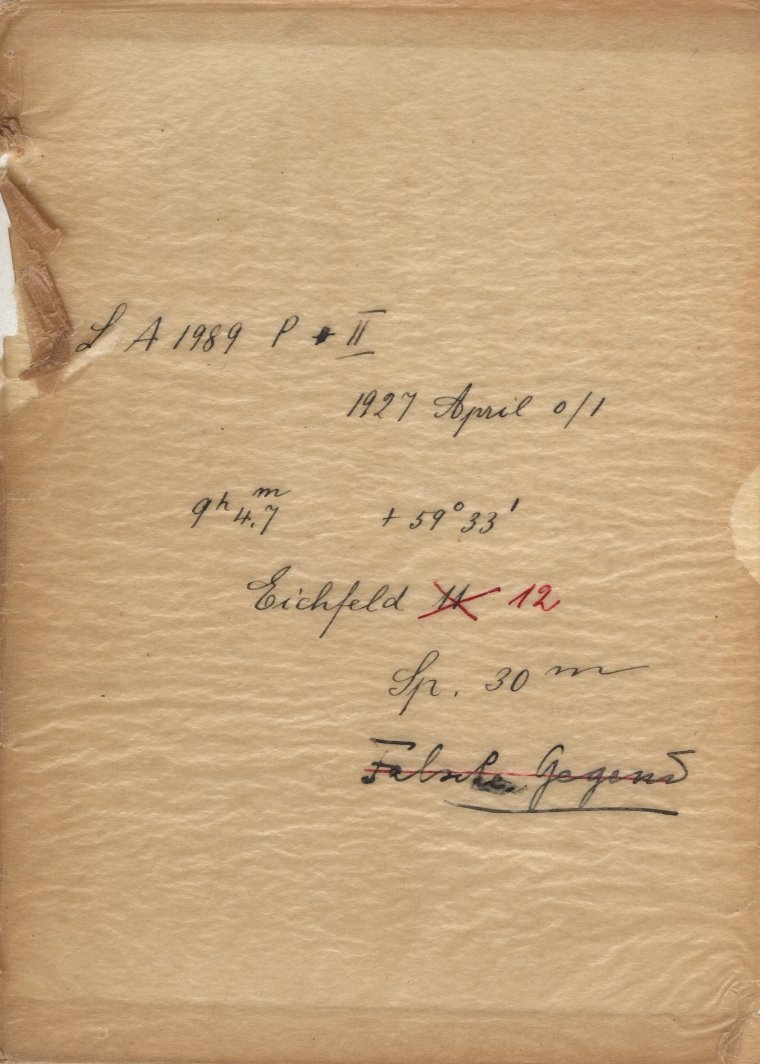 L A 1989 P + II
1927 April 0/1
9h 4.7m + 59° 33'
Eichfeld 11 12
Sp. 30 m
Falsche Gegend